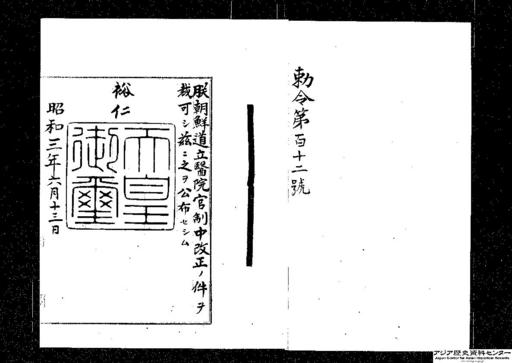 勅令第百十二號
朕朝鮮道立醫院官制中改正ノ件ヲ
裁可シ茲ニ之ヲ公布セシム
裕仁
天皇
御璽
昭和三年六月十三日
アジア歴史資料センター
Japan Center for Asian Historical Records